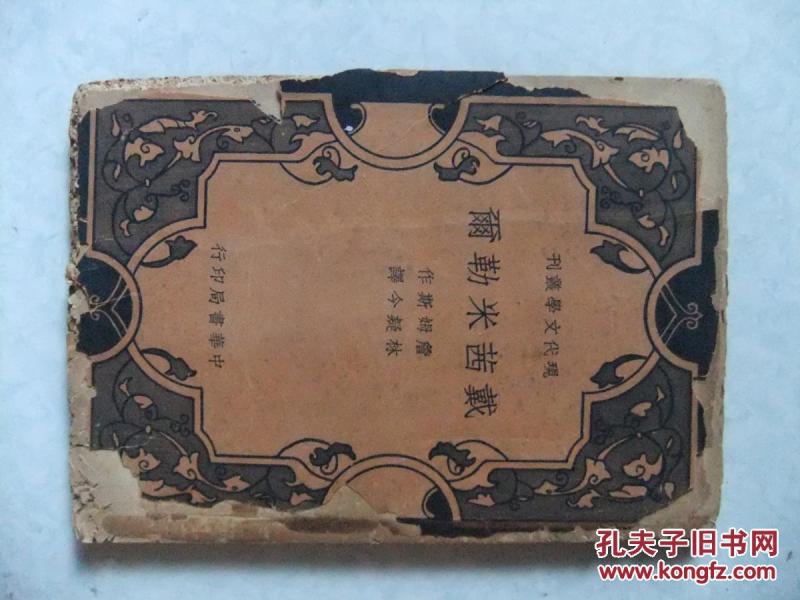 現代文學叢刊
戴茜米勒爾
詹姆斯作
林疑今譯
中華書局印行
孔夫子旧书网
www.kongfz.com